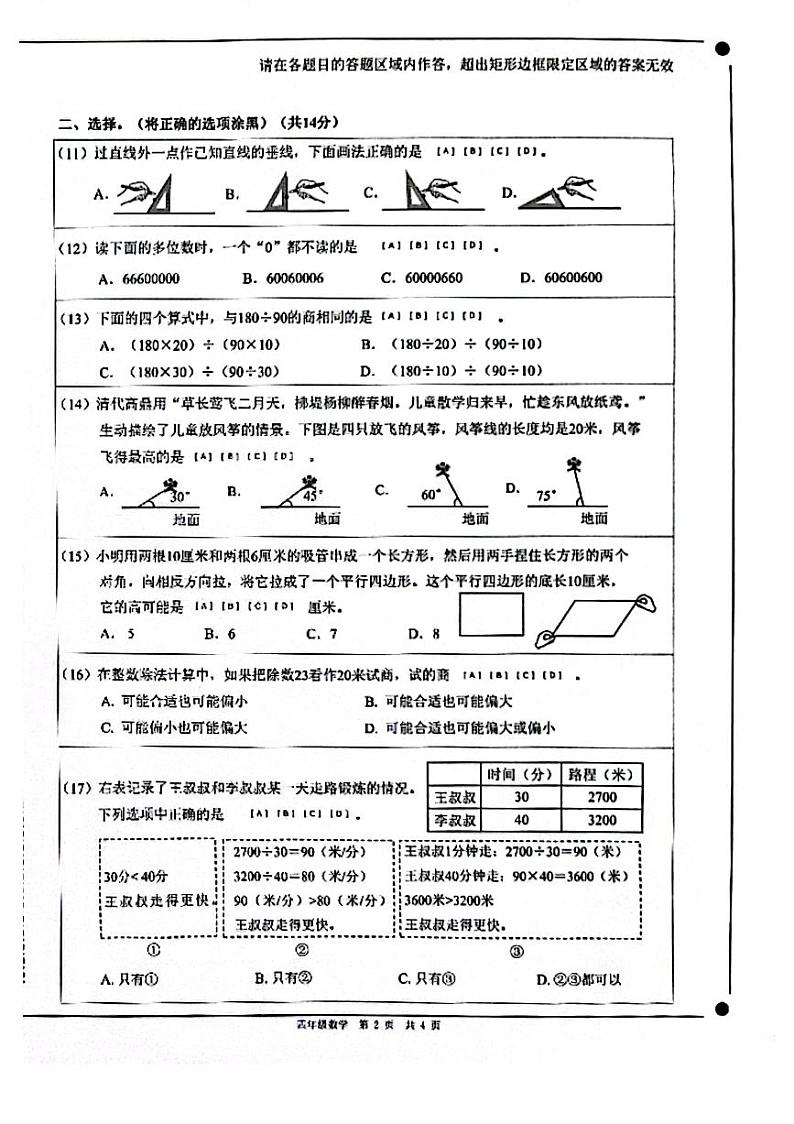 请在各题目的答题区域内作答，超出矩形边框限定区域的答案无效
二、选择。（将正确的选项涂黑）（共14分）
(11) 过直线外一点作已知直线的垂线，下面画法正确的是 [A] [B] [C] [D]。
A. B. C. D.
(12) 读下面的多位数时，一个“0”都不读的是 [A] [B] [C] [D] 。
A. 66600000 B. 60060006 C. 60000660 D. 60600600
(13) 下面的四个算式中，与180÷90的商相同的是 [A] [B] [C] [D] 。
A. （180×20）÷（90×10） B. （180÷20）÷（90÷10）
C. （180×30）÷（90÷30） D. （180÷10）÷（90÷10）
(14) 清代高鼎用“草长莺飞二月天，拂堤杨柳醉春烟。儿童散学归来早，忙趁东风放纸鸢。”
生动描绘了儿童放风筝的情景。下图是四只放飞的风筝，风筝线的长度均是20米，风筝
飞得最高的是 [A] [B] [C] [D] 。
A. 30° B. 45° C. 60° D. 75°
地面 地面 地面 地面
(15) 小明用两根10厘米和两根6厘米的吸管串成一个长方形，然后用两手捏住长方形的两个
对角，向相反方向拉，将它拉成了一个平行四边形。这个平行四边形的底长10厘米，
它的高可能是 [A] [B] [C] [D] 厘米。
A. 5 B. 6 C. 7 D. 8
(16) 在整数除法计算中，如果把除数23看作20来试商，试的商 [A] [B] [C] [D] 。
A. 可能合适也可能偏小 B. 可能合适也可能偏大
C. 可能偏小也可能偏大 D. 可能合适也可能偏大或偏小
(17) 右表记录了王叔叔和李叔叔某一天走路锻炼的情况。
下列选项中正确的是 [A] [B] [C] [D] 。
时间（分） 路程（米）
王叔叔 30 2700
李叔叔 40 3200
30分<40分
王叔叔走得更快。
①
2700÷30＝90（米/分）
3200÷40＝80（米/分）
90（米/分）>80（米/分）
王叔叔走得更快。
②
王叔叔1分钟走：2700÷30＝90（米）
王叔叔40分钟走：90×40＝3600（米）
3600米>3200米
王叔叔走得更快。
③
A. 只有① B. 只有② C. 只有③ D. ②③都可以
四年级数学 第 2 页 共 4 页